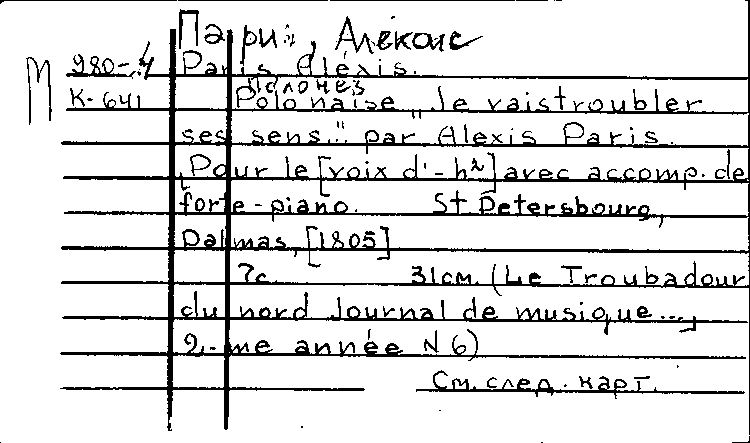 Пари, Алексис
М 980-4 Paris, Alexis.
Полонез
К-641 Polonaise „Je vais troubler
ses sens." par Alexis Paris.
Pour le [voix d'-h²] avec accomp. de
forte-piano. St. Petersbourg,
Dalmas, [1805]
7с. 31см. (Le Troubadour
du nord Journal de musique...,
2-me année N 6)
См. след. карт.